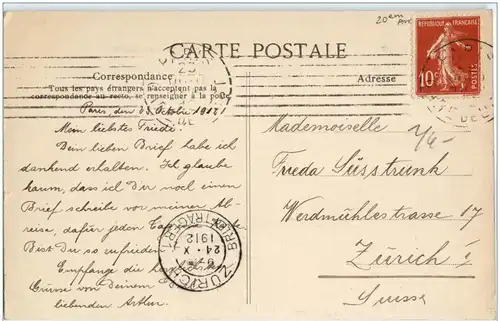 20em
CARTE POSTALE
REPUBLIQUE FRANÇAISE
10c
POSTES
Correspondance
Adresse
Tous les pays étrangers n'acceptent pas la
correspondance au recto, se renseigner à la poste
Paris, den Octobre 1912
Mein liebstes Friedel.
Dein lieben Brief habe ich
dankend erhalten. Ich glaube
kaum, dass ich Dir noch einen
Brief schreibe vor meiner Ab-
reise, dafür jeden
Bist Du so zufrieden
Empfange die
Grüsse von Deinem
liebenden Arthur.
Mademoiselle
Frieda Süsstrunk
Werdmühlestrasse 17
Zürich 1
Suisse
ZÜRICH
BRIEFTRÄGER
24.X
1912